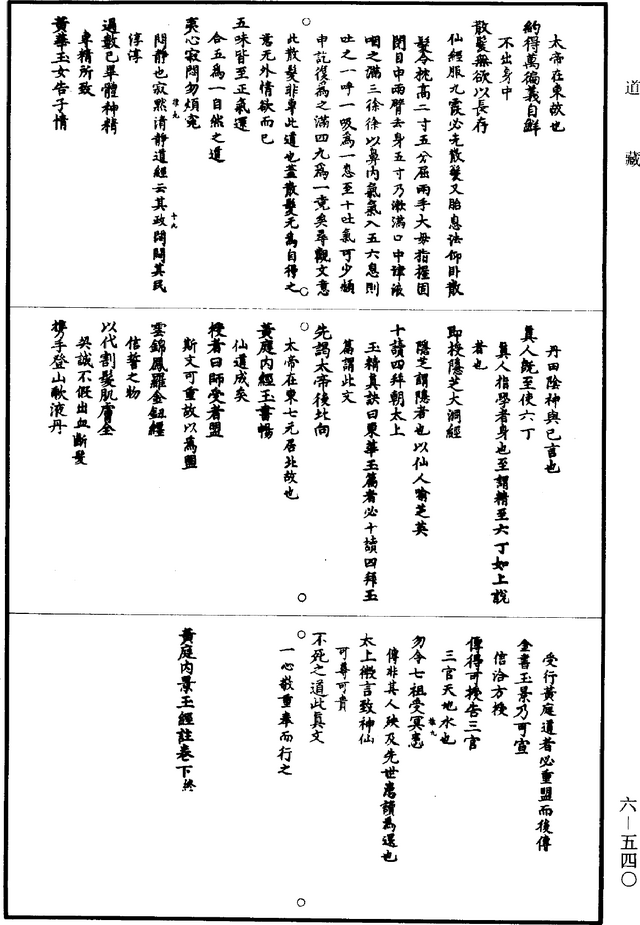 道藏
太帝在東故也
約得萬徧義自鮮
不出身中
散髮無欲以長存
仙經服九霞必先散髮又胎息法仰卧散
髮令枕高二寸五分屈兩手大母指握固
閉目申兩臂去身五寸乃漱滿口中津液
咽之滿三徐徐以鼻内氣氣入五六息則
吐之一呼一吸爲一息至十吐氣可少頻
申訖復爲之滿四九爲一竟矣尋觀文意
此散髮非專此道也蓋散髮无爲自得之
意无外情欲而已
五味皆至正氣還
合五爲一自然之道
夷心寂悶勿煩冤
悶静也寂黙清静道經云其政悶悶其民
淳淳
過數已畢體神精
專精所致
黄華玉女告子情
丹田陰神與已言也
真人既至使六丁
真人指學者身也至謂精至六丁如上說
者也
即授隱芝大洞經
隱芝謂隱者也以仙人喻芝英
十讀四拜朝太上
玉精真訣曰東華玉篇者必十讀四拜玉
篇謂此文
先謁太帝後北向
太帝在東七元居北故也
黄庭内經玉書暢
仙道成矣
授者曰師受者盟
斯文可重故以爲盟
雲錦鳳羅金鈕纏
信誓之物
以代割髮肌膚全
吳誠不假出血斷髮
攜手登山歃液丹
受行黄庭道者必重盟而後傳
金書玉景乃可宣
信洽方授
傳得可授告三官
三官天地水也
勿令七祖受冥患
傳非其人殃及先世患讀爲還也
太上微言致神仙
可尊可貴
不死之道此真文
一心敬重奉而行之
黄庭内景玉經註卷下終
六—五四〇